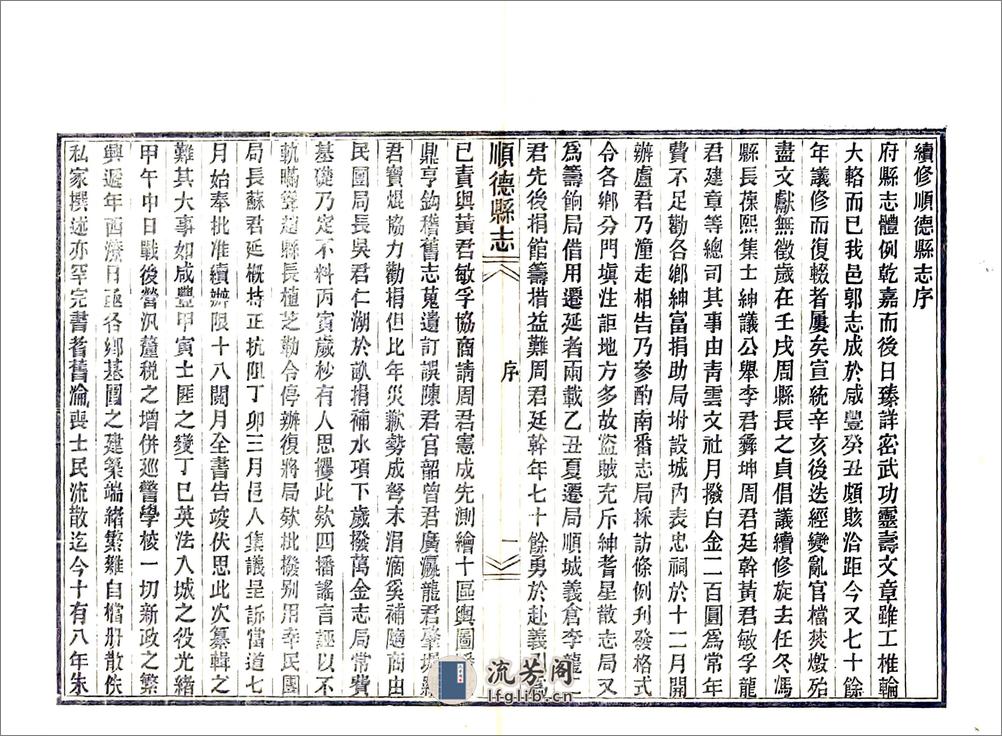 續修順德縣志序
府縣志體例乾嘉而後日臻詳密武功靈壽文章雖工椎輪
大輅而已我邑郭志成於咸豐癸丑頗賅洽距今又七十餘
年議修而復輟者屢矣宣統辛亥後迭經變亂官檔焚燬殆
盡文獻無徵歲在壬戌周縣長之貞倡議續修旋去任冬馮
縣長葆熙集士紳議公舉李君彝坤周君廷幹黃君敏孚龍
君建章等總司其事由青雲文社月撥白金二百圓爲常年
費不足勸各鄉紳富捐助局坿設城內表忠祠於十二月開
辦盧君乃潼走相告乃參酌南番志局採訪條例刋發格式
令各鄉分門塡注詎地方多故盜賊充斥紳耆星散志局又
爲籌餉局借用遷延者兩載乙丑夏遷局順城義倉李龍二
君先後捐館籌措益難周君廷幹年七十餘勇於赴義引爲
順德縣志
序
一
已責與黃君敏孚協商請周君憲成先測繪十區輿圖
鼎亨鈎稽舊志蒐遺訂誤陳君官韶曾君廣瀛龍君肇墀
君寶焜協力勸捐但比年災歉勢成弩末涓滴奚補隨商由
民團局長吳君仁湖於畝捐補水項下歲撥萬金志局常費
基礎乃定不料丙寅歲杪有人思攫此欵四播謠言誣以不
軌瞞聳趙縣長植芝勒令停辦復將局欵批撥別用幸民團
局長蘇君延概持正抗阻丁卯三月邑人集議呈訴當道七
月始奉批准續辦限十八閱月全書告竣伏思此次纂輯之
難其大事如咸豐甲寅土匪之變丁巳英法入城之役光緒
甲午中日戰後營汛釐稅之增併巡警學校一切新政之繁
興邇年西潦日亟各鄉基圍之建築端緒繁雜自檔册散佚
私家撰述亦罕完書耆舊淪喪士民流散迄今十有八年朱
流芳阁
lfglib.cn